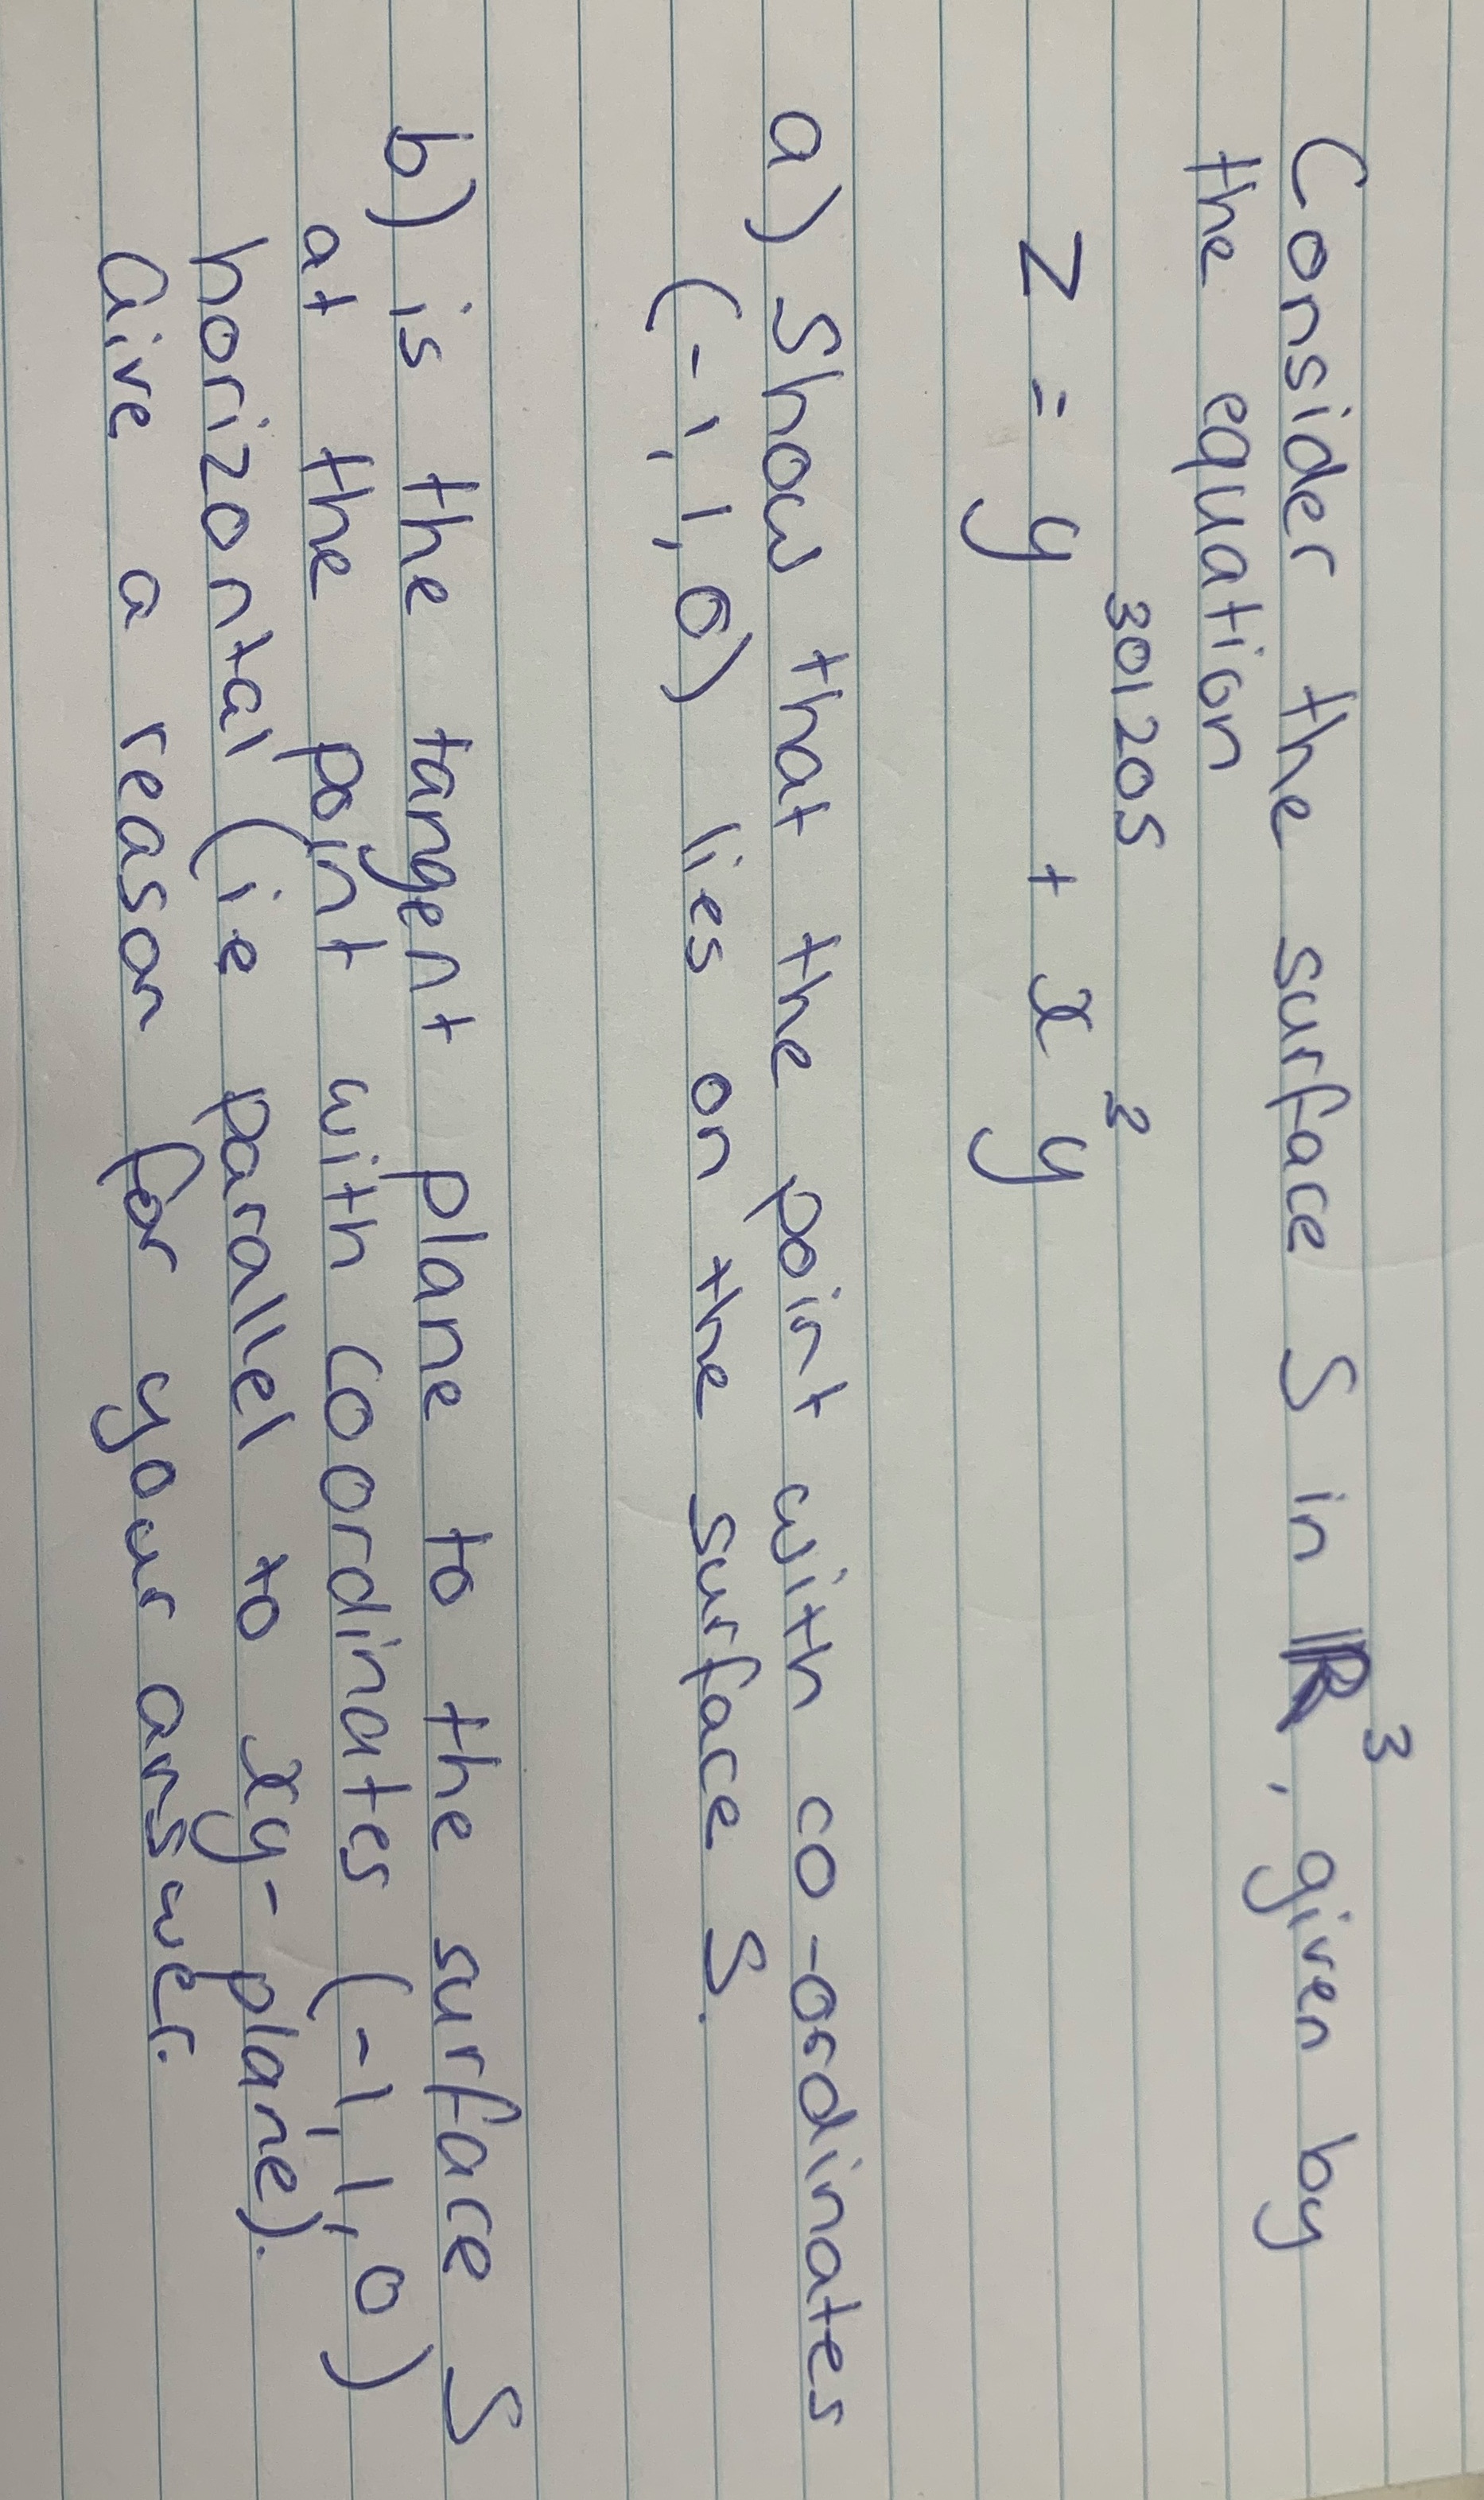 Consider the surface S in ℝ³, given by
the equation
z = y³⁰¹²⁰⁵ + x²y
a) Show that the point with co-ordinates
(-1, 1, 0) lies on the surface S.
b) is the tangent plane to the surface S
at the point with coordinates (-1, 1, 0)
horizontal (ie parallel to xy-plane).
Give a reason for your answer.